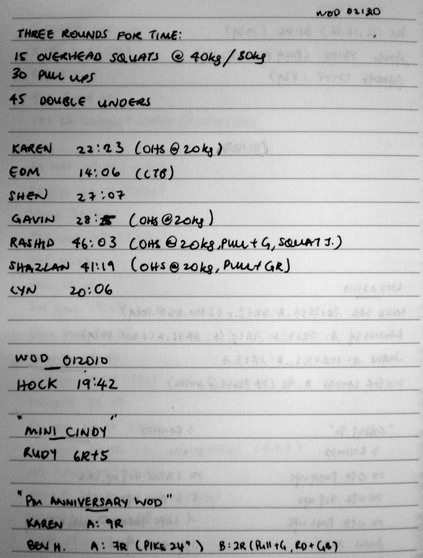 WOD 02120
THREE ROUNDS FOR TIME:
15 OVERHEAD SQUATS @ 40kg/30kg
30 PULL UPS
45 DOUBLE UNDERS
KAREN 22:23 (OHS @ 20kg)
EDM 14:06 (CTB)
SHEN 27:07
GAVIN 28: (OHS @ 20kg)
RASHID 46:03 (OHS @ 20kg, PULL+G, SQUAT J.)
SHAZLAN 41:19 (OHS @ 20kg, PULL+GR)
LYN 20:06
WOD_012010
HOCK 19:42
"MINI_CINDY"
RUDY 6R+5
"PM ANNIVERSARY WOD"
KAREN A: 9R
BEN H. A: 7R (PIKE 24") B: 2R (PULL+G, RD+GR)